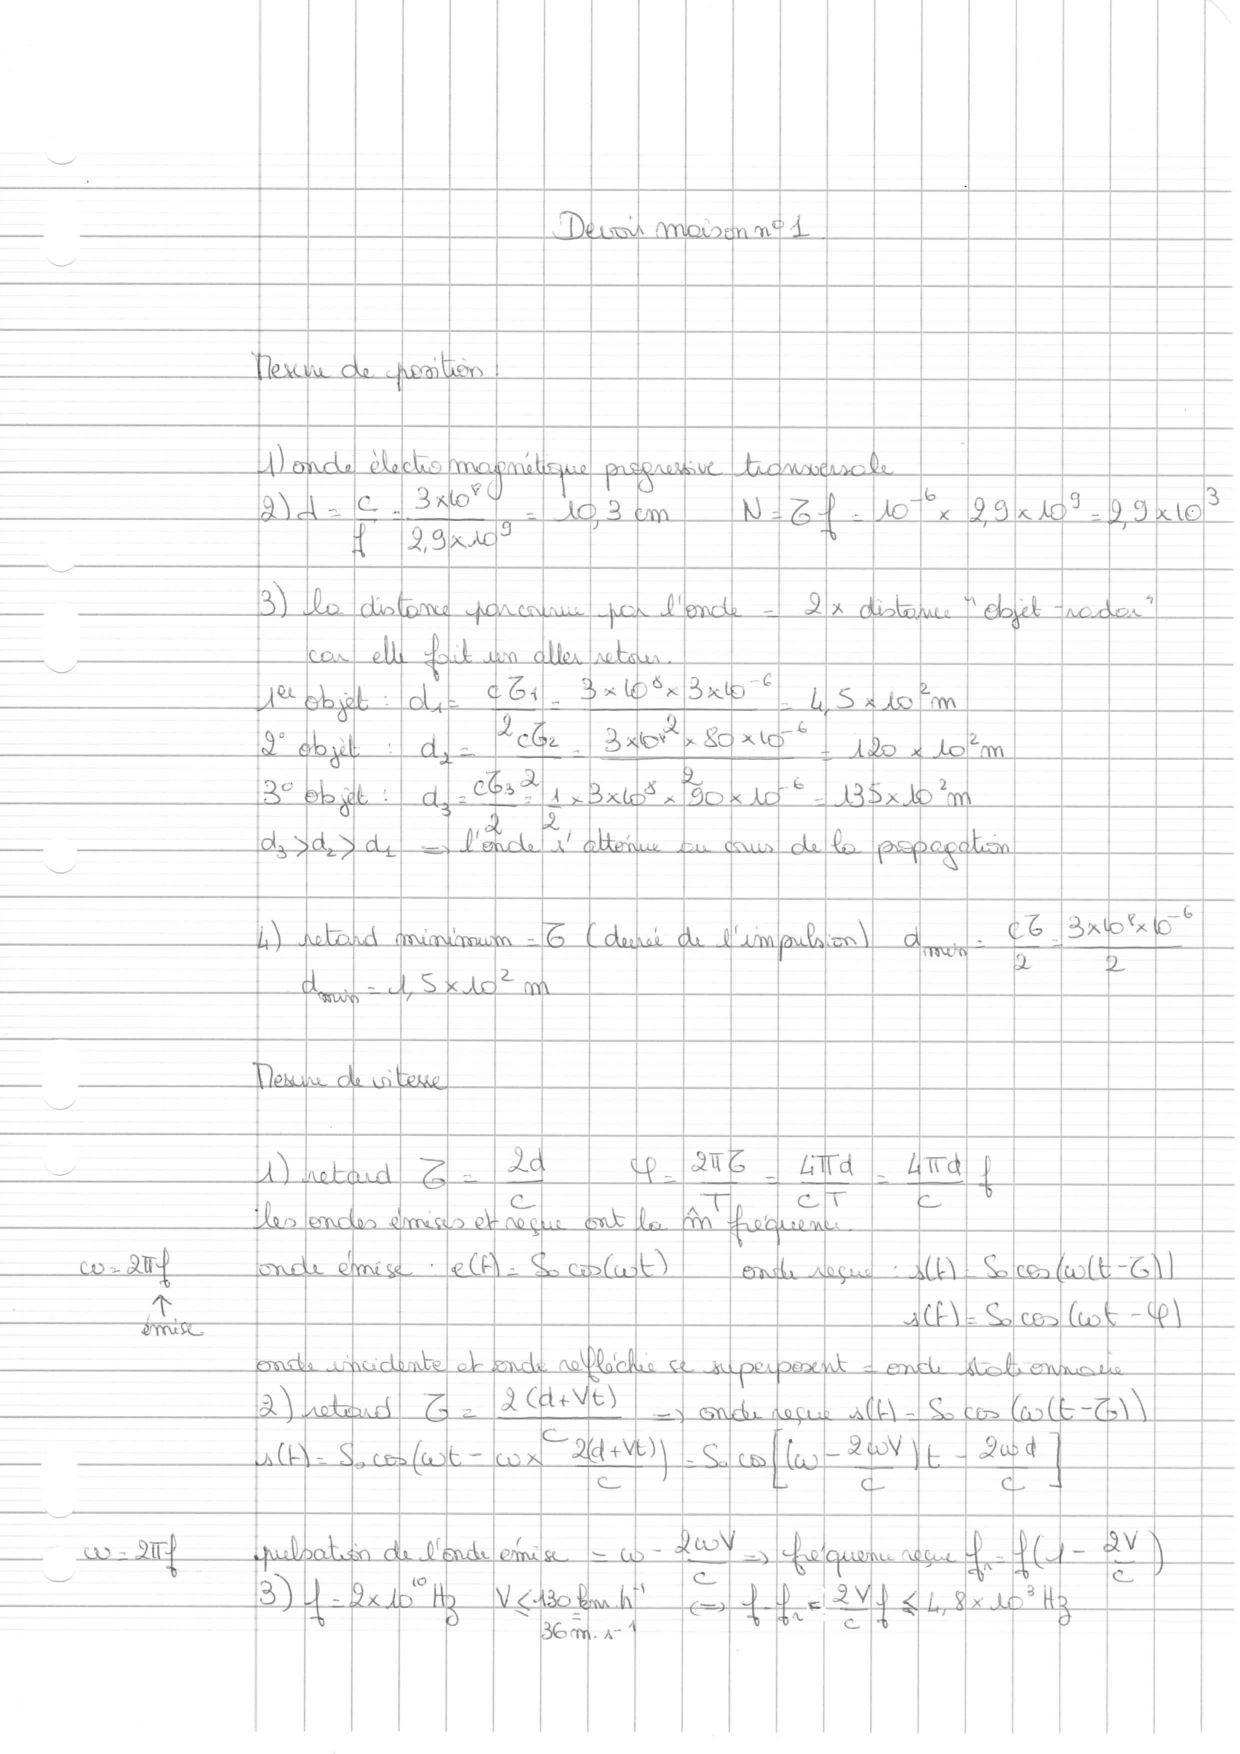 Devoir maison n° 1
Mesure de position :
1) onde électromagnétique progressive transversale
2) λ = c/f = 3×10⁸/2,9×10⁹ = 10,3 cm N = τ f = 10⁻⁶ × 2,9×10⁹ = 2,9×10³
3) la distance parcourue par l'onde = 2 × distance "objet-radar"
car elle fait un aller retour.
1er objet : d₁ = cτ₁/2 = 3×10⁸×3×10⁻⁶/2 = 4,5×10² m
2° objet : d₂ = cτ₂/2 = 3×10⁸×80×10⁻⁶/2 = 120×10² m
3° objet : d₃ = cτ₃/2 = 1/2 × 3×10⁸ × 90×10⁻⁶ = 135×10² m
d₃ > d₂ > d₁ ⇒ l'onde s'attenue au cours de la propagation
4) retard minimum = τ (durée de l'impulsion) dmin = cτ/2 = 3×10⁸×10⁻⁶/2
dmin = 1,5×10² m
Mesure de vitesse
1) retard τ = 2d/c φ = 2πτ/T = 4πd/cT = 4πd/c f
les ondes émises et reçue ont la m̂ fréquence.
ω = 2πf
↑
émise
onde émise : e(t) = S₀ cos(ωt) onde reçue : s(t) = S₀ cos(ω(t-τ))
s(t) = S₀ cos(ωt - φ)
onde incidente et onde réfléchie se superposent = onde stationnaire
2) retard τ = 2(d+Vt)/c ⇒ onde reçue s(t) = S₀ cos(ω(t-τ))
s(t) = S₀ cos(ωt - ω× 2(d+Vt)/c) = S₀ cos[(ω - 2ωV/c)t - 2ωd/c]
ω = 2πf
pulsation de l'onde émise = ω - 2ωV/c ⇒ fréquence reçue fr = f(1 - 2V/c)
3) f = 2×10¹⁰ Hz V ≤ 130 km.h⁻¹ ⇔ f - fr = 2V/c f ≤ 4,8×10³ Hz
= 36 m.s⁻¹